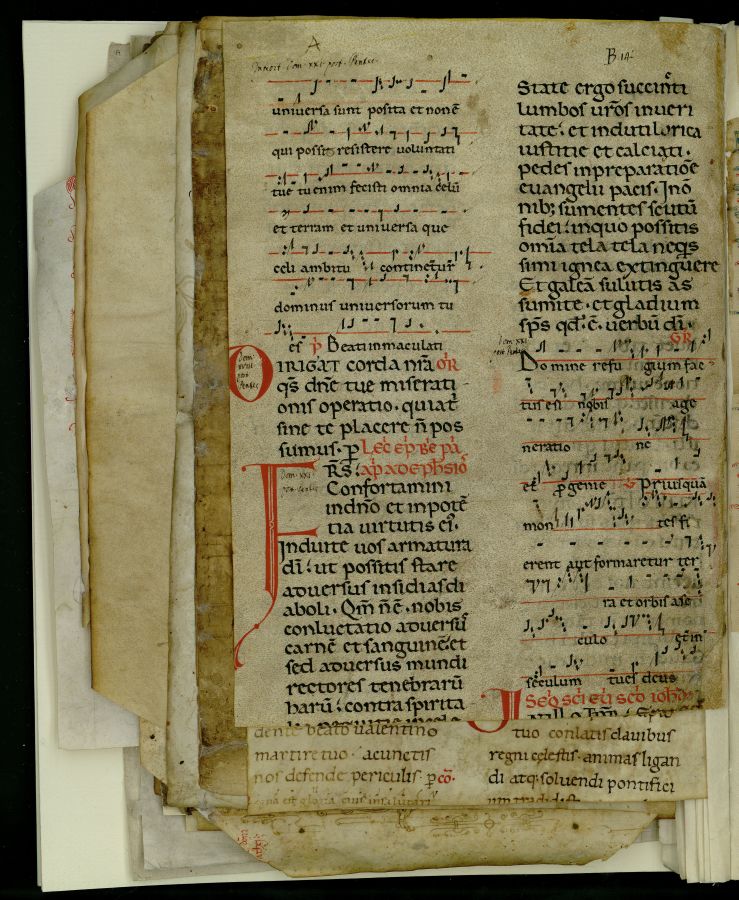 A
B 14.
Introit Dom. XXI post. Pentec.
universa sunt posita et non ē
qui possit resistere voluntati
tuę tu enim fecisti omnia cęlū
et terram et universa que
cęli ambitu continetur
dominus universorum tu
es ꝑ Beati inmaculati
Dom. XXI post Pentec
DIRIGAT corda nr̄a OR̄
qs̄ dn̄e tue miserati
onis operatio · quia t̄
sine te placere n̄ pos
sumus · ꝑ LEC̄ EP̄ BE PA
Dom. XXI post Pentec
FRS̄: AP̄ AD EPHSIO
Confortamini
in dn̄o et in potē
tia virtutis ei᾽·
Induite vos armatura
dī: ut possitis stare
adversus insidias di
aboli · Qm̄ n̄ ē · nobis
conluctatio adversū
carnē et sanguinē: et
sed adversus mundi
rectores tenebrarū
harū: contra spirita
State ergo succinti
lumbos vr̄os in veri
tate: et induti lorica
iustitie et calciati ·
pedes in preparatiōe
euangelii pacis · In ō
nib; sumentes scutū
fidei: in quo possitis
omīa tela tela neqs
simi ignea extinguere
Et galeā salutis as
sumite · et gladium
sp̄s qd̄ · ē · verbū dī ·
GR̄
Dom. XXI post Pentec
Domine refugium fac
tus es nobis age
neratio ne
et ꝓgenie ℣ Priusquā
mon tes fi
erent aut formaretur ter
ra et orbis a se
culo et in
seculum tu es deus
dente beato ualentino
martire tuo · a cunctis
nos defende periculis · ꝑ cō·
tuo conlatis clavibus
regni cęlestis · animas ligan
di atq; soluendi pontifici